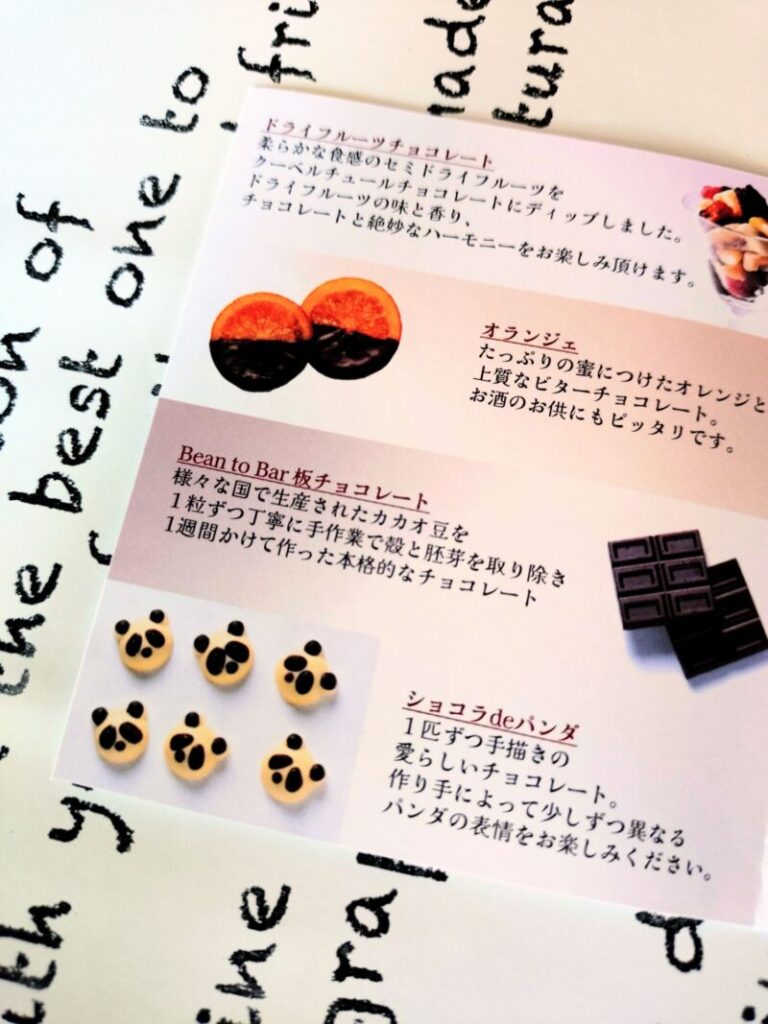 ドライフルーツチョコレート
柔らかな食感のセミドライフルーツを
クーベルチュールチョコレートにディップしました。
ドライフルーツの味と香り、
チョコレートと絶妙なハーモニーをお楽しみ頂けます。
オランジェ
たっぷりの蜜につけたオレンジと
上質なビターチョコレート。
お酒のお供にもピッタリです。
Bean to Bar 板チョコレート
様々な国で生産されたカカオ豆を
1粒ずつ丁寧に手作業で殻と胚芽を取り除き
1週間かけて作った本格的なチョコレート
ショコラdeパンダ
1匹ずつ手描きの
愛らしいチョコレート。
作り手によって少しずつ異なる
パンダの表情をお楽しみください。
of
the best one to